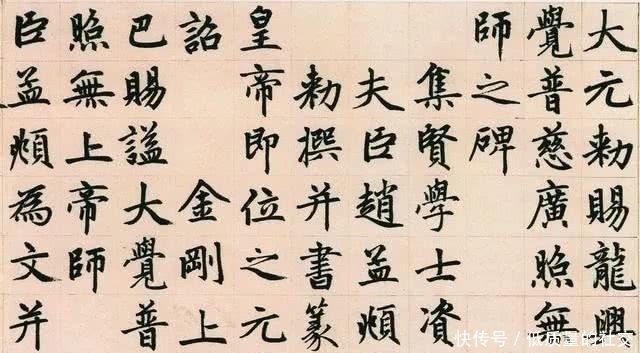 大元勅賜龍興
覺普慈廣照無
師之碑
集賢學士資
夫臣趙孟頫
勅撰并書篆
皇帝即位之元
詔 金剛上
巴賜謚大覺普
照無上帝師
臣孟頫為文并
快传号 / 低质量的社交